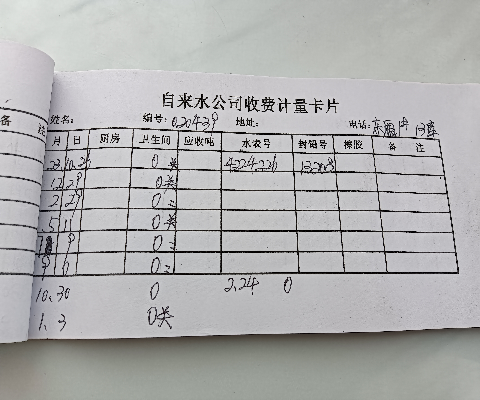 自来水公司收费计量卡片
姓名： 编号：020439 地址： 电话：
备 注 月 日 厨房 卫生间 应收吨 水表号 封铅号 橡胶 备 注
0关 4224226
12 29 0关
2 29 0
5 11 0关
9 0
9 11 0
10.30 0 2.24 0
1. 3 0关